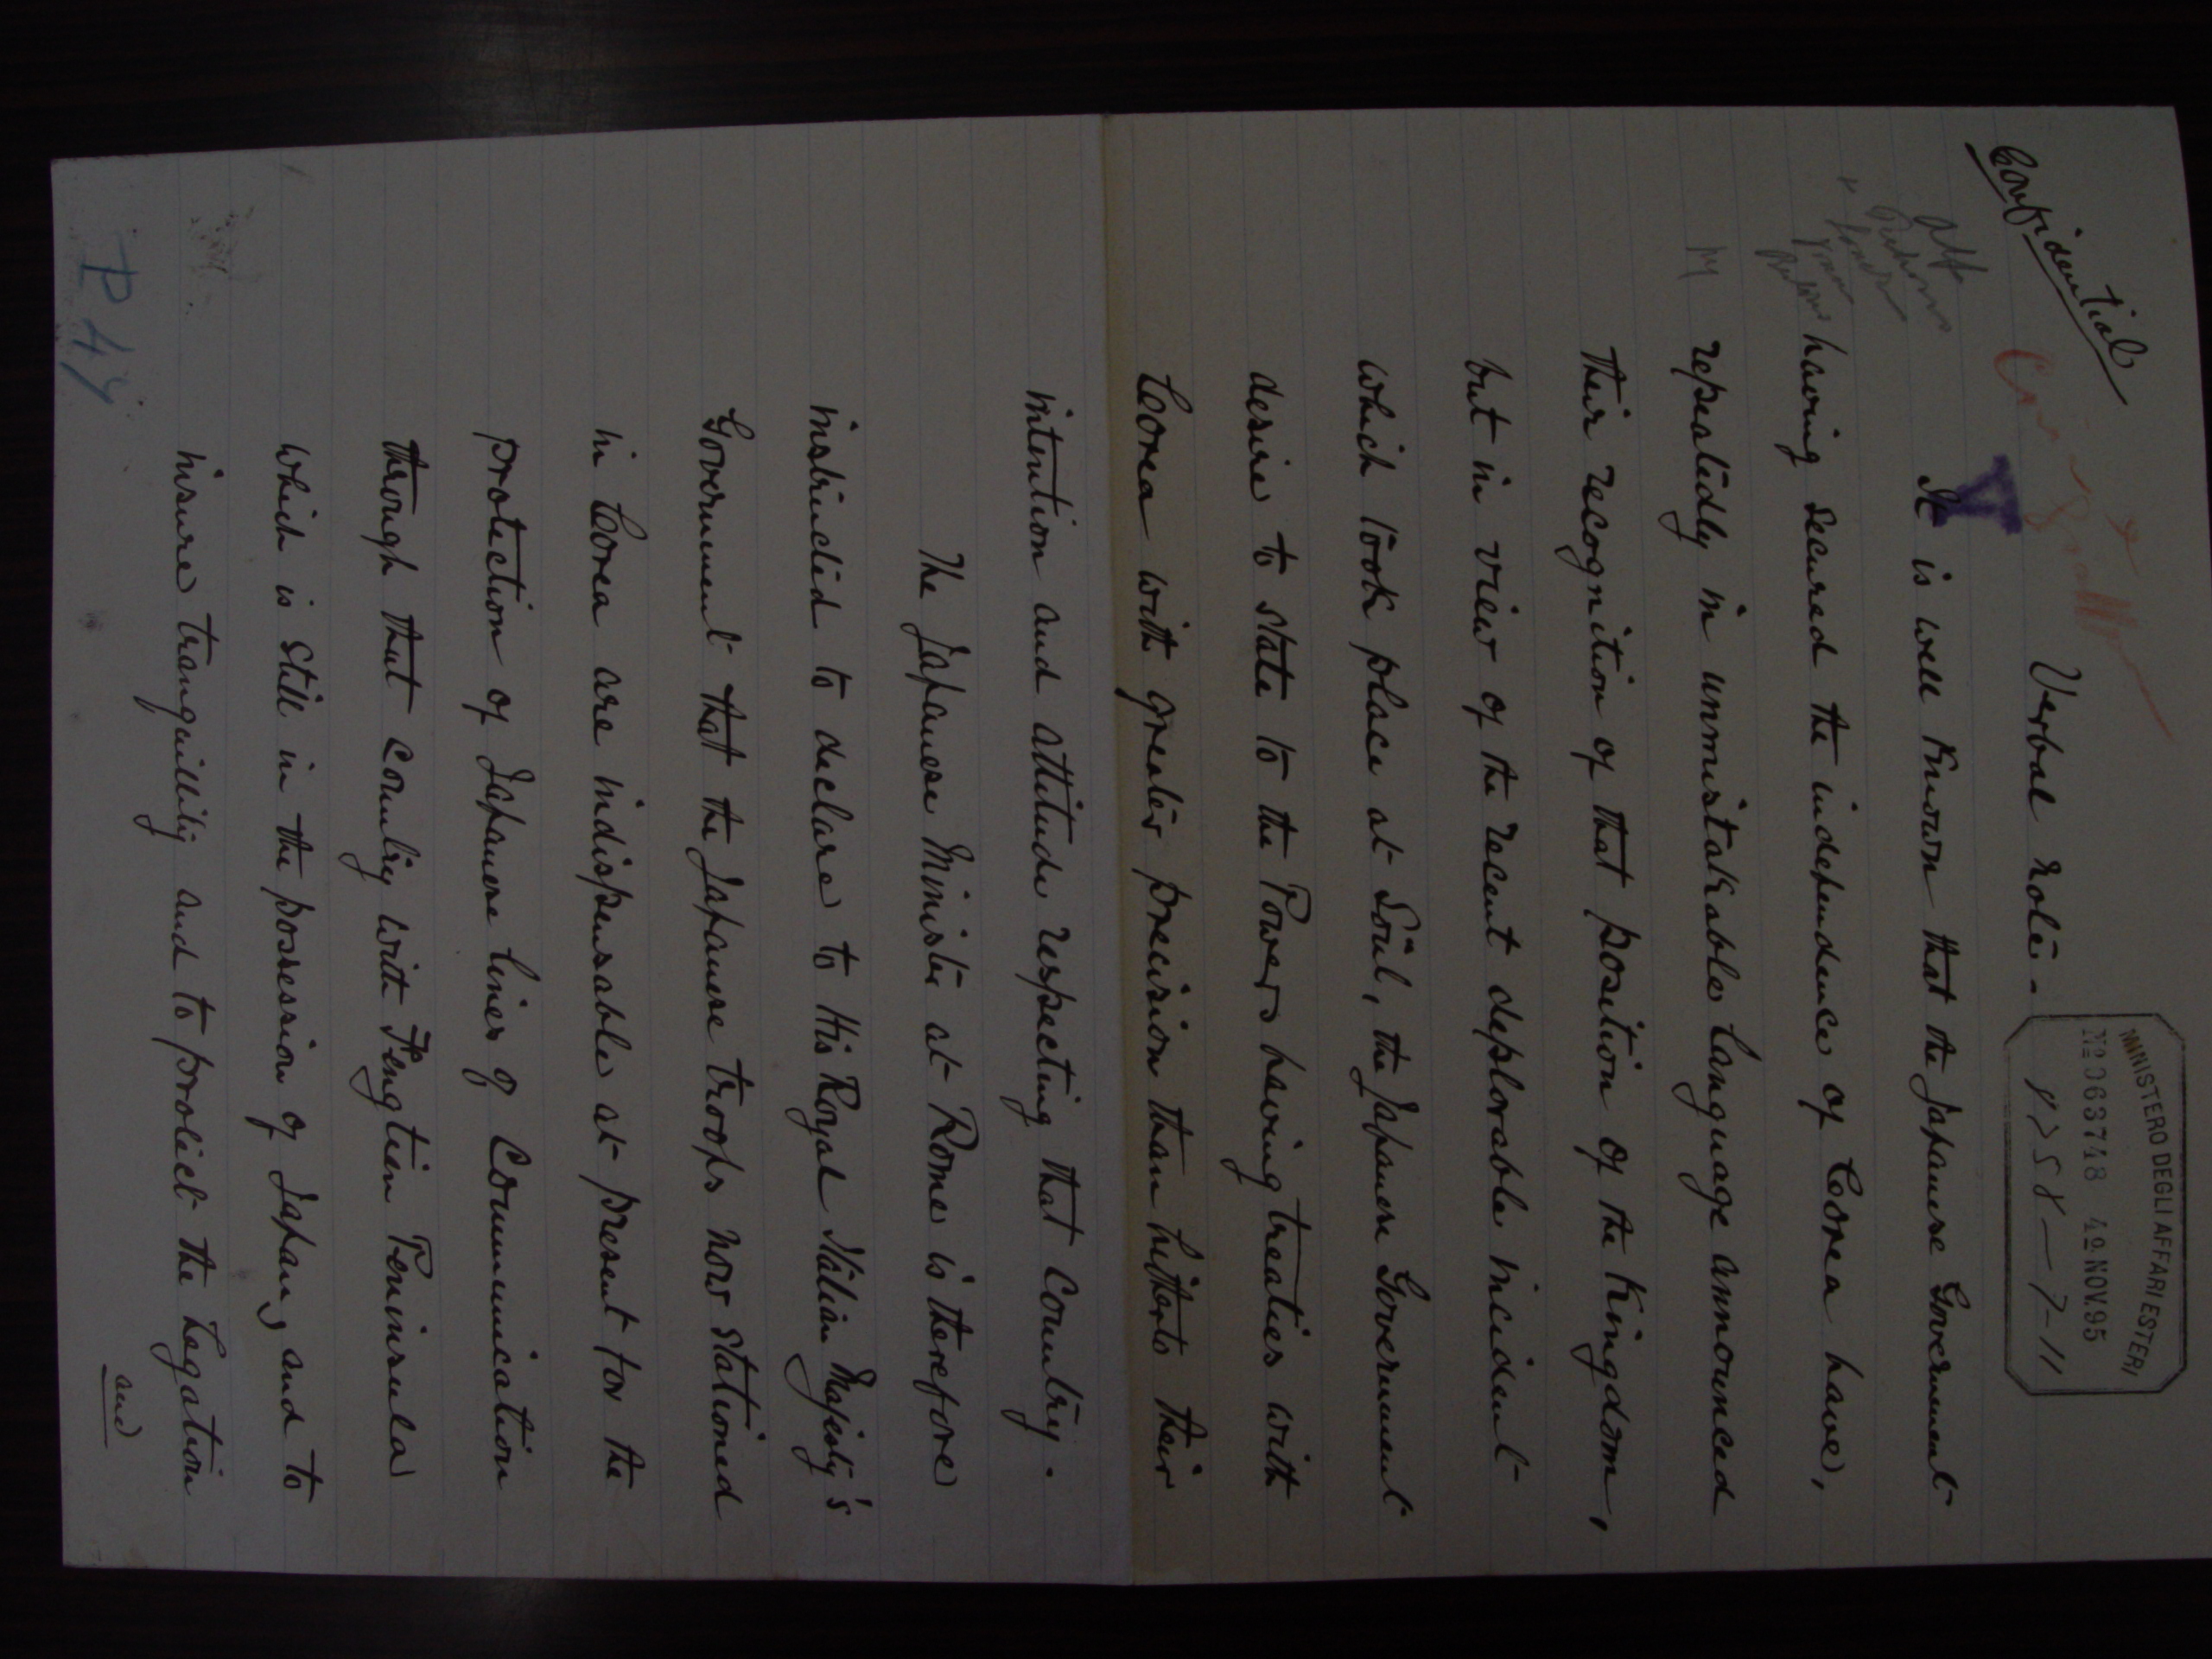 Confidential
MINISTERO DEGLI AFFARI ESTERI
No 063748 40 NOV.95
Verbal Note.
It is well known that the Japanese Government
having secured the independence of Corea have,
repeatedly in unmistakable language announced
their recognition of that position of the Kingdom,
but in view of the recent deplorable incident
which took place at Söul, the Japanese Government
desire to state to the Powers having treaties with
Corea with greater precision than hitherto their
intention and attitude respecting that country.
The Japanese Minister at Rome is therefore
instructed to declare to His Royal Italian Majesty's
Government that the Japanese troops now stationed
in Corea are indispensable at present for the
protection of Japanese lines of Communication
through that country with Fengtien Peninsula
which is still in the possession of Japan, and to
insure tranquillity and to protect the Legation
and